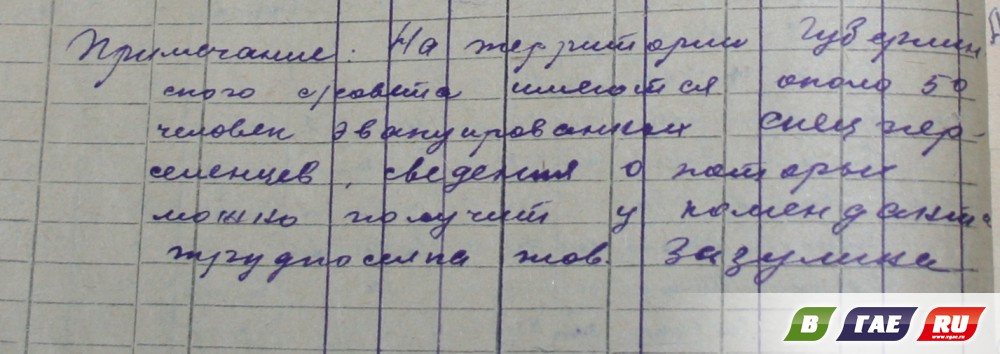 Примечание: На территории Губерлин
ского с/совета имеются около 50
человек эвакуированных спец пер-
селенцев, сведения о которых
можно получит у коменданта
трудпоселка тов. Зазулина
В ГАЕ RU
www.vgae.ru